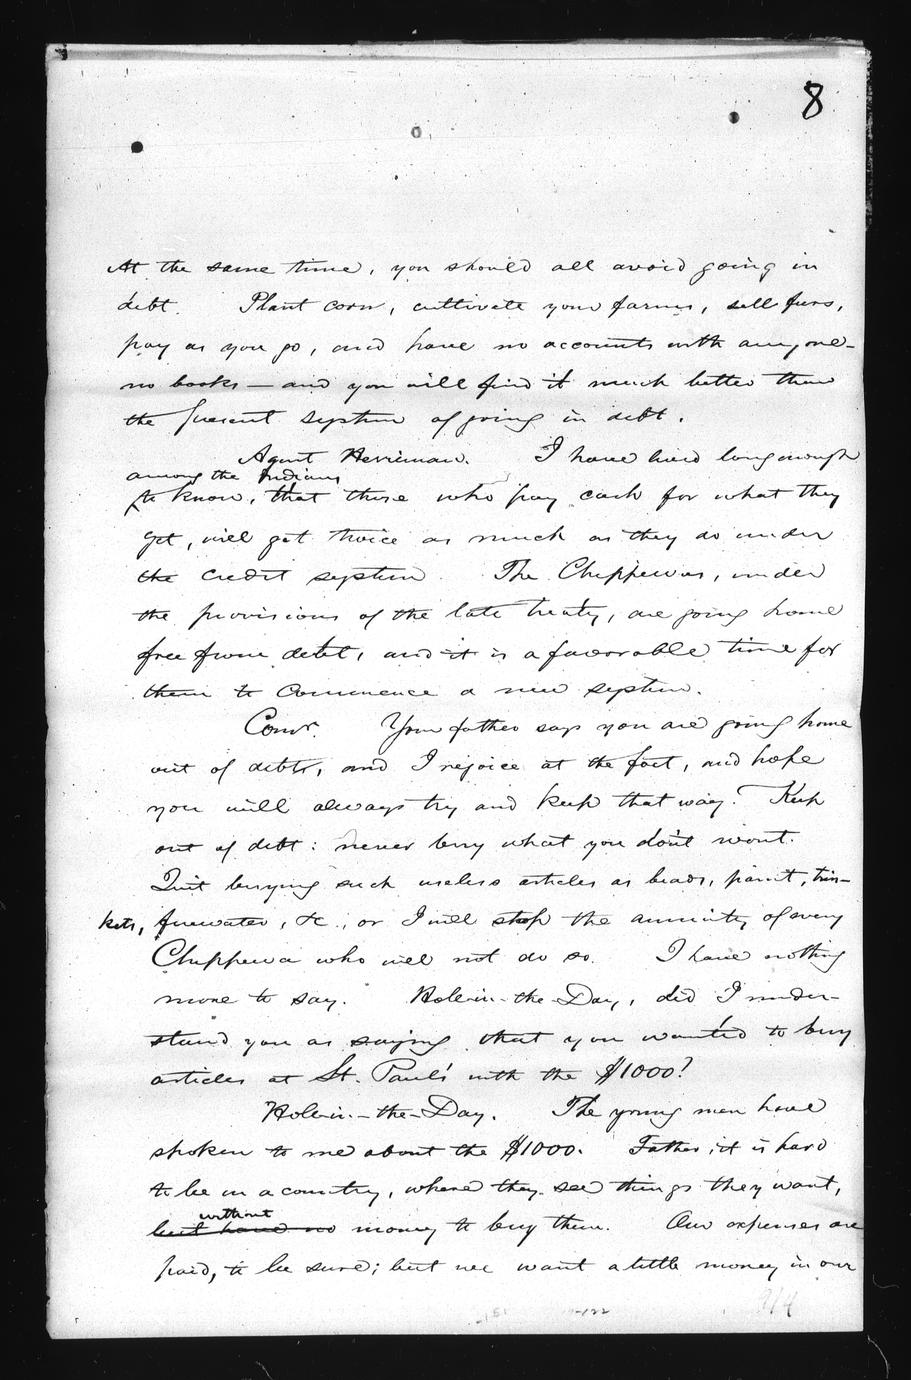 8
At the same time, you should all avoid going in
debt. Plant corn, cultivate your farms, sell furs,
pay as you go, and have no accounts with any one—
no books — and you will find it much better than
the present system of going in debt.
Agent Herriman. I have lived long enough
among the Indians
to know, that those who pay cash for what they
get, will get twice as much as they do under
the credit system. The Chippewas, under
the provisions of the late treaty, are going home
free from debt, and it is a favorable time for
them to commence a new system.
Comr. Your father says you are going home
out of debt, and I rejoice at the fact, and hope
you will always try and keep that way. Keep
out of debt: never buy what you don't want.
Quit buying such useless articles as beads, paint, trin-
kets, firewater, &c., or I will stop the annuity of every
Chippewa who will not do so. I have nothing
more to say. Hole-in-the-Day, did I under-
stand you as saying that you wanted to buy
articles at St. Paul's with the $1000?
Hole-in-the-Day. The young men have
spoken to me about the $1000. Father, it is hard
to be in a country, where they see things they want,
without
but have no money to buy them. Our expenses are
paid, to be sure; but we want a little money in our
914